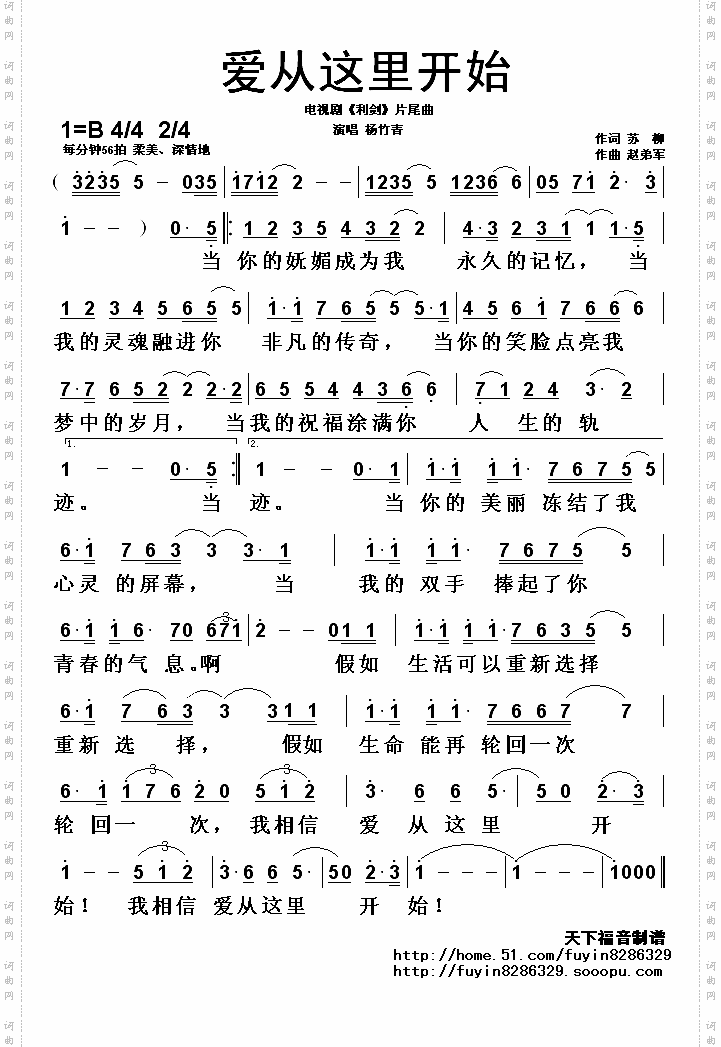 爱从这里开始
电视剧《利剑》片尾曲
演唱 杨竹青
1=B 4/4 2/4
每分钟56拍 柔美、深情地
作词 苏 柳
作曲 赵弟军
( 3235 5 - 035 | 1712 2 - - | 1235 5 1236 6 | 05 71 2· 3 |
1 - - ) 0· 5 ‖: 1 2 3 5 4 3 2 2 | 4·3 2 3 1 1 1·5 |
当 你的妩媚成为我 永久的记忆, 当
1 2 3 4 5 6 5 5 | 1·1 7 6 5 5 5·1 | 4 5 6 1·7 6 6 6 |
我的灵魂融进你 非凡的传奇, 当你的笑脸点亮我
7·7 6 5 2 2 2·2 | 6 5 5 4 4 3 6 6· | 7 1 2 4 3· 2 |
梦中的岁月, 当我的祝福涂满你 人 生的 轨
1. 2.
1 - - 0· 5 :‖ 1 - - 0· 1 | 1·1 1 1· 7 6 7 5 5 |
迹。 当 迹。 当 你的 美丽 冻结了我
6·1 7 6 3 3 3· 1 | 1·1 1 1· 7 6 7 5 5 |
心灵 的屏幕, 当 我的 双手 捧起了你
6·1 1 6· 70 671 | 2 - - 011 | 1·1 1 1·7 6 3 5 5 |
3
青春的气 息。啊 假如 生活可以重新选择
6·1 7 6 3 3 311 | 1·1 1 1· 7 6 6 7 7 |
重新 选 择, 假如 生命 能再 轮回一次
6· 1 1 7 6 2 0 5 1 2 | 3· 6 6 5· | 5 0 2·3 |
3 3
轮 回一 次, 我相信 爱 从 这 里 开
1 - - 5 1 2 | 3·6 6 5· | 50 2·3 | 1 - - - | 1 - - - | 1000 ‖
3
始! 我相信 爱从这里 开 始!
天下福音制谱
http://home.51.com/fuyin8286329
http://fuyin8286329.sooopu.com
词曲网